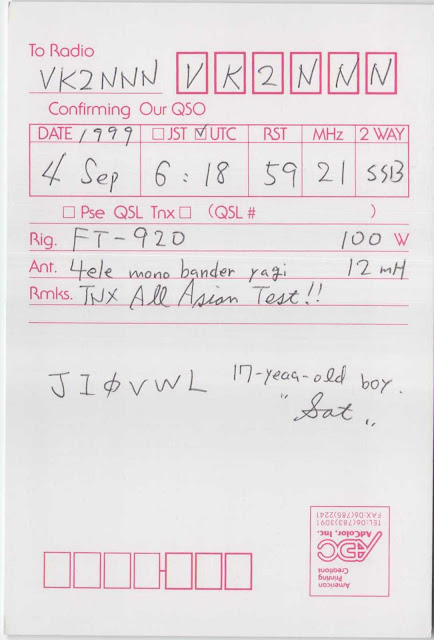 To Radio
VK2NNN VK2NNN
Confirming Our QSO
DATE 1999 □ JST ☑ UTC RST MHz 2 WAY
4 Sep 6:18 59 21 SSB
□ Pse QSL Tnx □ (QSL # )
Rig. FT-920 100 W
Ant. 4ele mono bander yagi 12 mH
Rmks. TNX All Asian Test!!
JIØVWL 17-year-old boy.
"Sat„
American
Printing
ADC
AdColor, Inc.
TEL:06(783)3091
FAX:06(786)2241